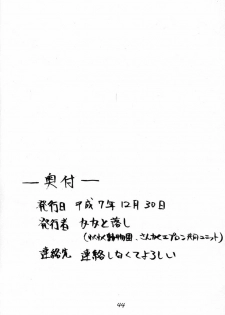 —奥付—
発行日 平成7年12月30日
発行者 かかと落し
(わくわく動物園、さんかくエプロン共同ユニット)
連絡先 連絡しなくてよろしい
44